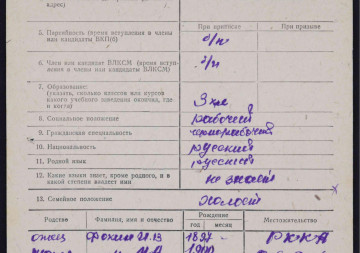 адрес)
При приписке
При призыве
5. Партийность (время вступления в члены
или кандидаты ВКП(б)
б/п
6. Член или кандидат ВЛКСМ (время вступ-
ления в члены или кандидаты ВЛКСМ)
7. Образование:
(указать, сколько классов или курсов
какого учебного заведения окончил, где
и когда)
3 кл
8. Социальное положение
рабочий
9. Гражданская специальность
чернорабочий
10. Национальность
русский
11. Родной язык
русский
12. Какие языки знает, кроме родного, и в
какой степени владеет ими
не знает
13. Семейное положение
холост
Родство
Фамилия, имя и отчество
Рождения
Местожительство
год
месяц
отец
1897
РККА
1900